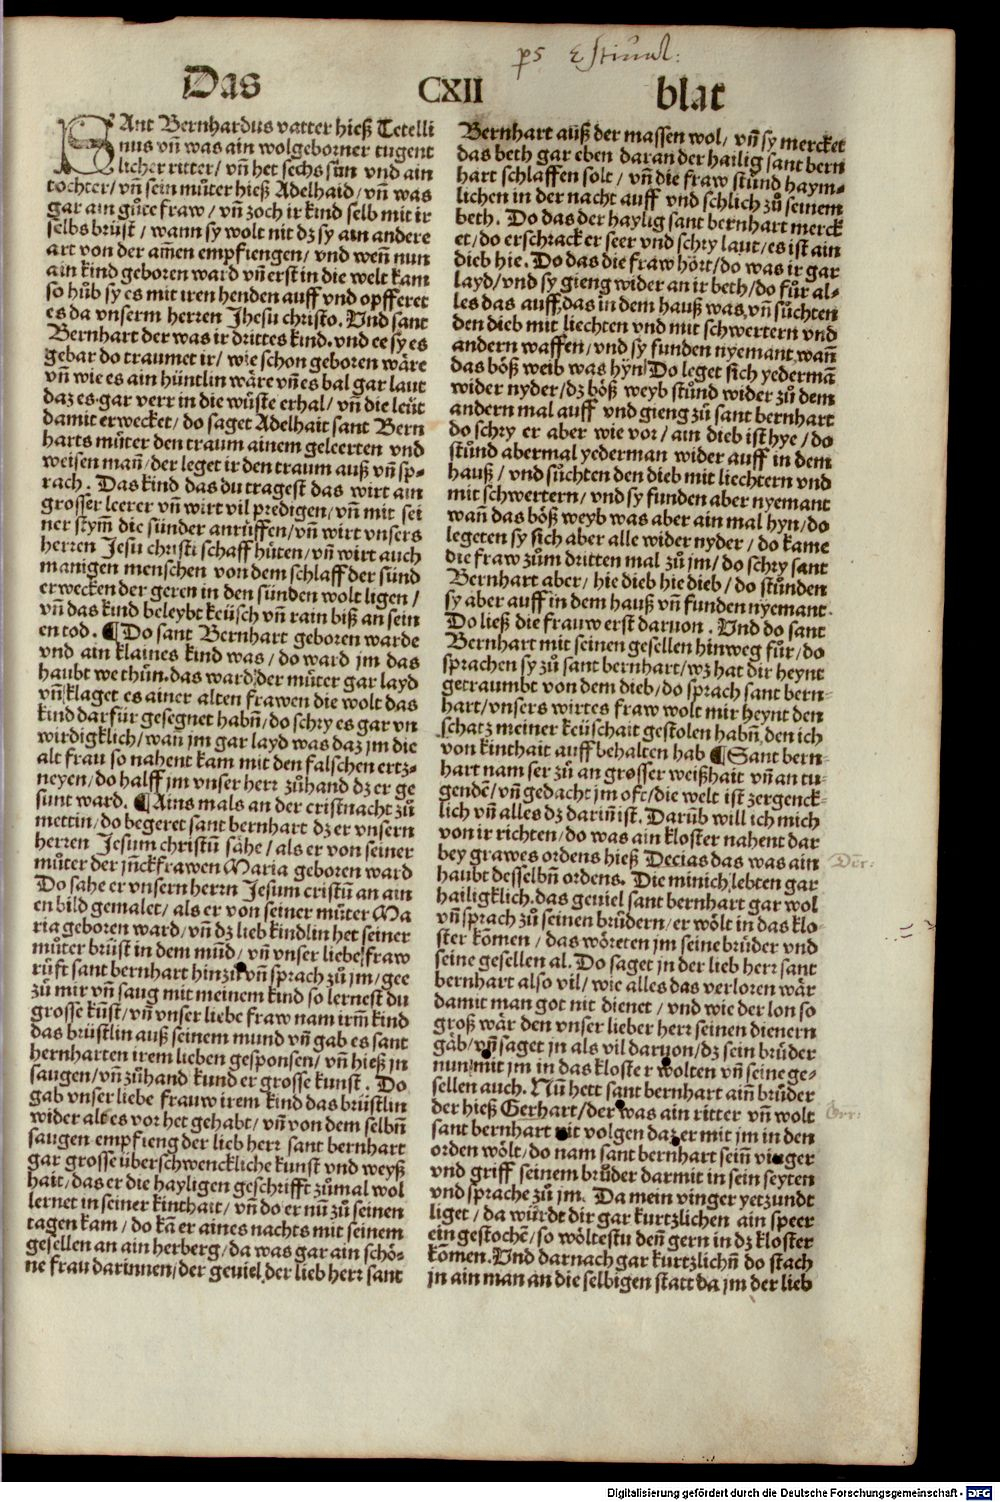 ps Estiual:
Das CXII blat
SAnt Bernhardus vatter hieß Tetelli
nus vn̄ was ain wolgeborner tugent
licher ritter / vn̄ het sechs sün vnd ain
tochter / vn̄ sein můter hieß Adelhaid / vn̄ was
gar ain gůte fraw / vn̄ zoch ir kind selb mit ir
selbs brüst / wann sy wolt nit dz sy ain andere
art von der am̄en empfiengen / vnd wen̄ nun
ain kind geboren ward vn̄ erst in die welt kam
so hůb sy es mit iren henden auff vnd opfferet
es da vnserm herren Jhesu christo. Vnd sant
Bernhart der was ir drittes kind. vnd ee sy es
gebar do traumet ir / wie schon geboren wäre
vn̄ wie es ain hüntlin wäre vn̄ es bal gar laut
daz es gar verr in die wüste erhal / vn̄ die leüt
damit erwecket / do saget Adelhait sant Bern
harts můter den traum ainem geleerten vnd
weisen man̄ / der leget ir den traum auß vn̄ sp⸗
rach. Das kind das du tragest das wirt ain
grosser leerer vn̄ wirt vil predigen / vn̄ mit sei
ner stym̄ die sünder anrůffen / vn̄ wirt vnsers
herren Jesu christi schaff hüten / vn̄ wirt auch
manigen menschen von dem schlaff der sünd
erwecken der geren in den sünden wolt ligen /
vn̄ das kind beleybt keüsch vn̄ rain biß an sein
en tod. ¶ Do sant Bernhart geboren warde
vnd ain klaines kind was / do ward jm das
haubt we thůn. das ward der můter gar layd
vn̄ klaget es ainer alten frawen die wolt das
kind darfür gesegnet habn̄ / do schry es gar vn
wirdigklich / wan̄ jm gar layd was daz jm die
alt frau so nahent kam mit den falschen ertz⸗
neyen / do halff jm vnser herr zůhand dz er ge
sunt ward. ¶ Ains mals an der cristnacht zů
mettin / do begeret sant bernhart dz er vnsern
herren Jesum christū sähe / als er von seiner
můter der jnckfrawen Maria geboren ward
Do sahe er vnsern herrn Jesum cristū an ain
en bild gemalet / als er von seiner můter Ma
ria geboren ward / vn̄ dz lieb kindlin het seiner
můter brüst in dem mūd / vn̄ vnser liebe fraw
rüft sant bernhart hinzů vn̄ sprach zů jm / gee
zů mir vn̄ saug mit meinem kind so lernest du
grosse kūst / vn̄ vnser liebe fraw nam irm̄ kind
das brüstlin auß seinem mund vn̄ gab es sant
bernharten irem lieben gesponsen / vn̄ hieß jn
saugen / vn̄ zůhand kund er grosse kunst. Do
gab vnser liebe frauw irem kind das brüstlin
wider als es vor het gehabt / vn̄ von dem selbn̄
saugen empfieng der lieb herr sant bernhart
gar grosse überschwenckliche kunst vnd weyß
hait / das er die hayligen geschrifft zůmal wol
lernet in seiner kinthait / vn̄ do er nū zů seinen
tagen kam / do kā er aines nachts mit seinem
gesellen an ain herberg / da was gar ain schö⸗
ne frau darinnen / der geuiel der lieb herr sant
Bernhart auß der massen wol / vn̄ sy mercket
das beth gar eben daran der hailig sant bern
hart schlaffen solt / vn̄ die fraw stůnd haym⸗
lichen in der nacht auff vnd schlich zů seinem
beth. Do das der haylig sant bernhart merck
et / do erschrack er seer vnd schry laut / es ist ain
dieb hie. Do das die fraw hört / do was ir gar
layd / vnd sy gieng wider an ir beth / do für al⸗
les das auff, das in dem hauß was, vn̄ sůchten
den dieb mit liechten vnd mit schwertern vnd
andern waffen / vnd sy funden nyemant wan̄
das böß weib was hyn / Do leget sich yedermā
wider nyder / dz böß weyb stůnd wider zů dem
andern mal auff vnd gieng zů sant bernhart
do schry er aber wie vor / ain dieb ist hye / do
stůnd abermal yederman wider auff in dem
hauß / vnd sůchten den dieb mit liechtern vnd
mit schwertern / vnd sy funden aber nyemant
wan̄ das böß weyb was aber ain mal hyn / do
legeten sy sich aber alle wider nyder / do kame
die fraw zům dritten mal zů jm / do schry sant
Bernhart aber / hie dieb hie dieb / do stůnden
sy aber auff in dem hauß vn̄ funden nyemant.
Do ließ die frauw erst daruon. Vnd do sant
Bernhart mit seinen gesellen hinweg für / do
sprachen sy zů sant bernhart / wz hat dir heynt
getraumbt von dem dieb / do sprach sant bern⸗
hart / vnsers wirtes fraw wolt mir heynt den
schatz meiner keüschait gestolen habn̄, den ich
von kinthait auff behalten hab ¶ Sant bern⸗
hart nam ser zů an grosser weißhait vn̄ an tu⸗
gendē / vn̄ gedacht jm oft / die welt ist zergenck⸗
lich vn̄ alles dz darin̄ ist. Darūb will ich mich
von ir richten / do was ain kloster nahent dar
bey grawes ordens hieß Decias das was ain
haubt desselbn̄ ordens. Die minich lebten gar
hailigklich. das geuiel sant bernhart gar wol
vn̄ sprach zů seinen brüdern / er wölt in das klo⸗
ster kōmen / das wöreten jm seine brüder vnd
seine gesellen al. Do saget jn der lieb herr sant
bernhart also vil / wie alles das verloren wär
damit man got nit dienet / vnd wie der lon so
groß wär den vnser lieber herr seinen dienern
gäb / vn̄ saget jn als vil daruon / dz sein brüder
nun mit jm in das kloster wolten vn̄ seine ge⸗
sellen auch. Nū hett sant bernhart ain̄ brůder
der hieß Gerhart / der was ain ritter vn̄ wolt
sant bernhart nit volgen daz er mit jm in den
orden wölt / do nam sant bernhart sein̄ vinger
vnd griff seinem brůder darmit in sein seyten
vnd sprache zů jm. Da mein vinger yetzundt
liget / da würdt dir gar kurtzlichen ain speer
ein gestochē / so wöltestu den̄ gern in dz kloster
kōmen. Vnd darnach gar kurtzlichn̄ do stach
jn ain man an die selbigen statt da jm der lieb
Digitalisierung gefördert durch die Deutsche Forschungsgemeinschaft - DFG